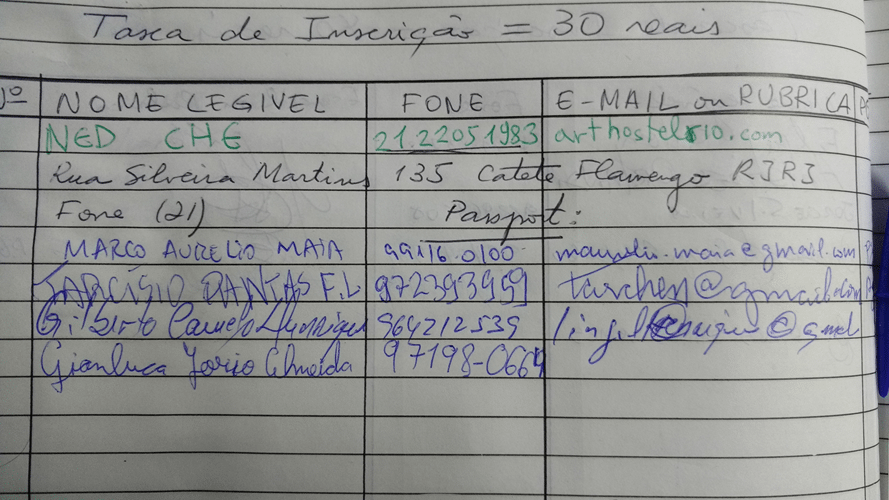 Taxa de Inscrição = 30 reais
Nº NOME LEGIVEL FONE E-MAIL ou RUBRICA
NED CHE 21.22051983 arthostelrio.com
Rua Silveira Martins 135 Catete Flamengo RJRJ
Fone (21) Passport:
MARCO AURELIO MAIA 99116.0100 maurelio.maia@gmail.com
TARCÍSIO DANTAS F.L 972393959 tarchen@gmail.com
Gilberto 964212539
Gianluca Jorio Almeida 97198-0664